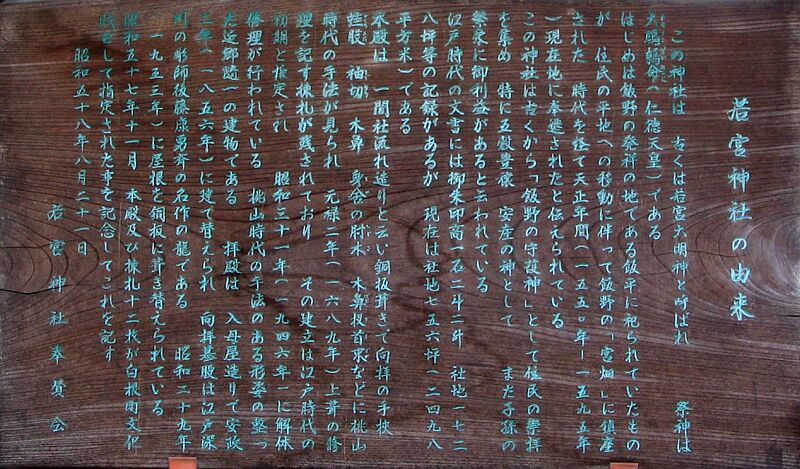 若宮神社の由来
この神社は 古くは若宮大明神と呼ばれ 祭神は
大鷦鷯命(仁徳天皇)である
はじめは飯野の発祥の地である飯平に祀られていたもの
が 住民の平地への移動に伴って飯野の「宮畑」に鎮座
された 時代を経て天正年間(一五五〇年ー一五九五年
)現在地に奉遷されたと伝えられている
この神社は古くから「飯野の守護神」として住民の崇拝
を集め 特に五穀豊穣 安産の神として また子孫の
繁栄に御利益があると云われている
江戸時代の文書には御朱印高一石二斗二升 社地一七二
八坪等の記録があるが 現在は社地七五六坪(二四九八
平方米)である
本殿は 一間社流れ造りと云い銅板葺きで向拝の手挟
蛙股 袖切 木鼻 身舎の肘木 木鼻投首束などに桃山
時代の手法が見られ 元禄二年(一六八九年)上葺の修
理を記す棟札が残されており その建立は江戸時代の
初期と推定され 昭和三十一年(一九四六年)に解体
修理が行われている 桃山時代の手法のある形姿の整っ
た近郷随一の建物である 拝殿は 入母屋造りで安政
三年(一八五六年)に建て替えられ 向拝墓股は江戸深
川の彫師後藤康男斉の名作の龍である 昭和二十九年
(一九五三年)に屋根を銅板に葺き替えられている
昭和五十七年十一月 本殿及び棟札十二枚が白根町文化
財として指定された事を記念してこれを記す
昭和五十八年八月二十一日
若宮神社奉賛会